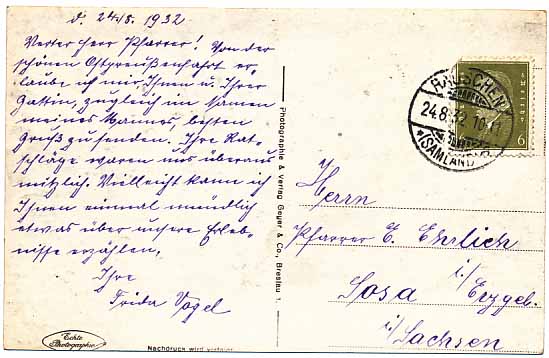 d. 24./8. 1932
Werter Herr Pfarrer! Von der
schönen Ostpreußenfahrt er-
laube ich mir, Ihnen u. Ihrer
Gattin, zugleich im Namen
meines Mannes, besten
Gruß zu senden. Ihre Rat-
schläge waren uns überaus
nützlich. Vielleicht kann ich
Ihnen einmal mündlich
etwas über unsere Erleb-
nisse erzählen.
Ihre
Frida Vogel
Echte
Photographie
Nachdruck wird
Photographie u. Verlag Geyer & Co., Breslau 1.
RAUSCHEN
24.8.32.10-11
*(SAMLAND)
6
Herrn
Pfarrer E. Ehrlich
Sosa i/ Erzgeb.
i/ Sachsen